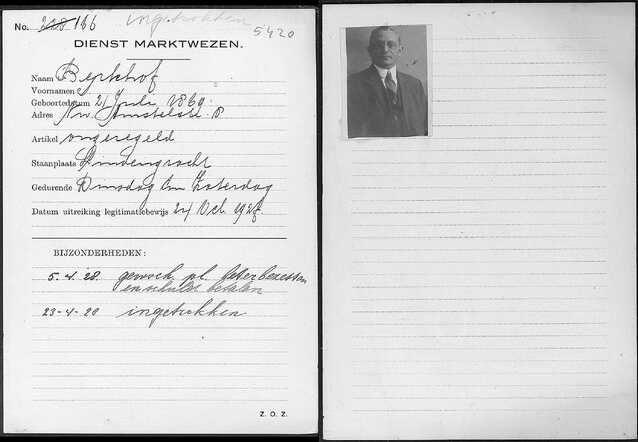 ingetrokken
No. 228 166
5420
DIENST MARKTWEZEN.
Naam Byrkhof
Voornamen
Geboortedatum 21 Juli 1869
Adres Nw. Amstelstr. 8
Artikel ongeregeld
Staanplaats Lindengracht
Gedurende Dinsdag en Zaterdag
Datum uitreiking legitimatiebewijs 24 Oct. 1927
BIJZONDERHEDEN:
5-4-28. gewsch. pl. beter bezetten
en schuld betalen
23-4-28 ingetrokken
Z. O. Z.